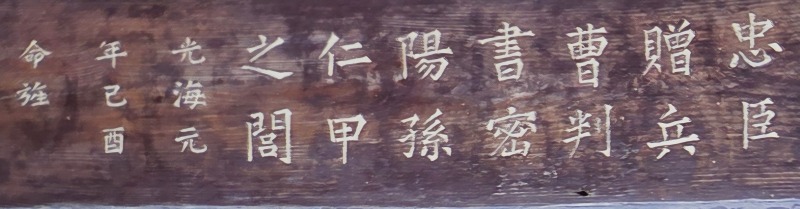 忠臣
贈兵
曹判
書密
陽孫
仁甲
之閭
光海元
年己酉
命旌